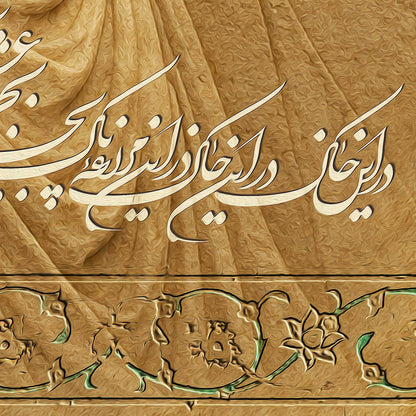 در این خاک در این خاک در این مزرعهٔ پاک